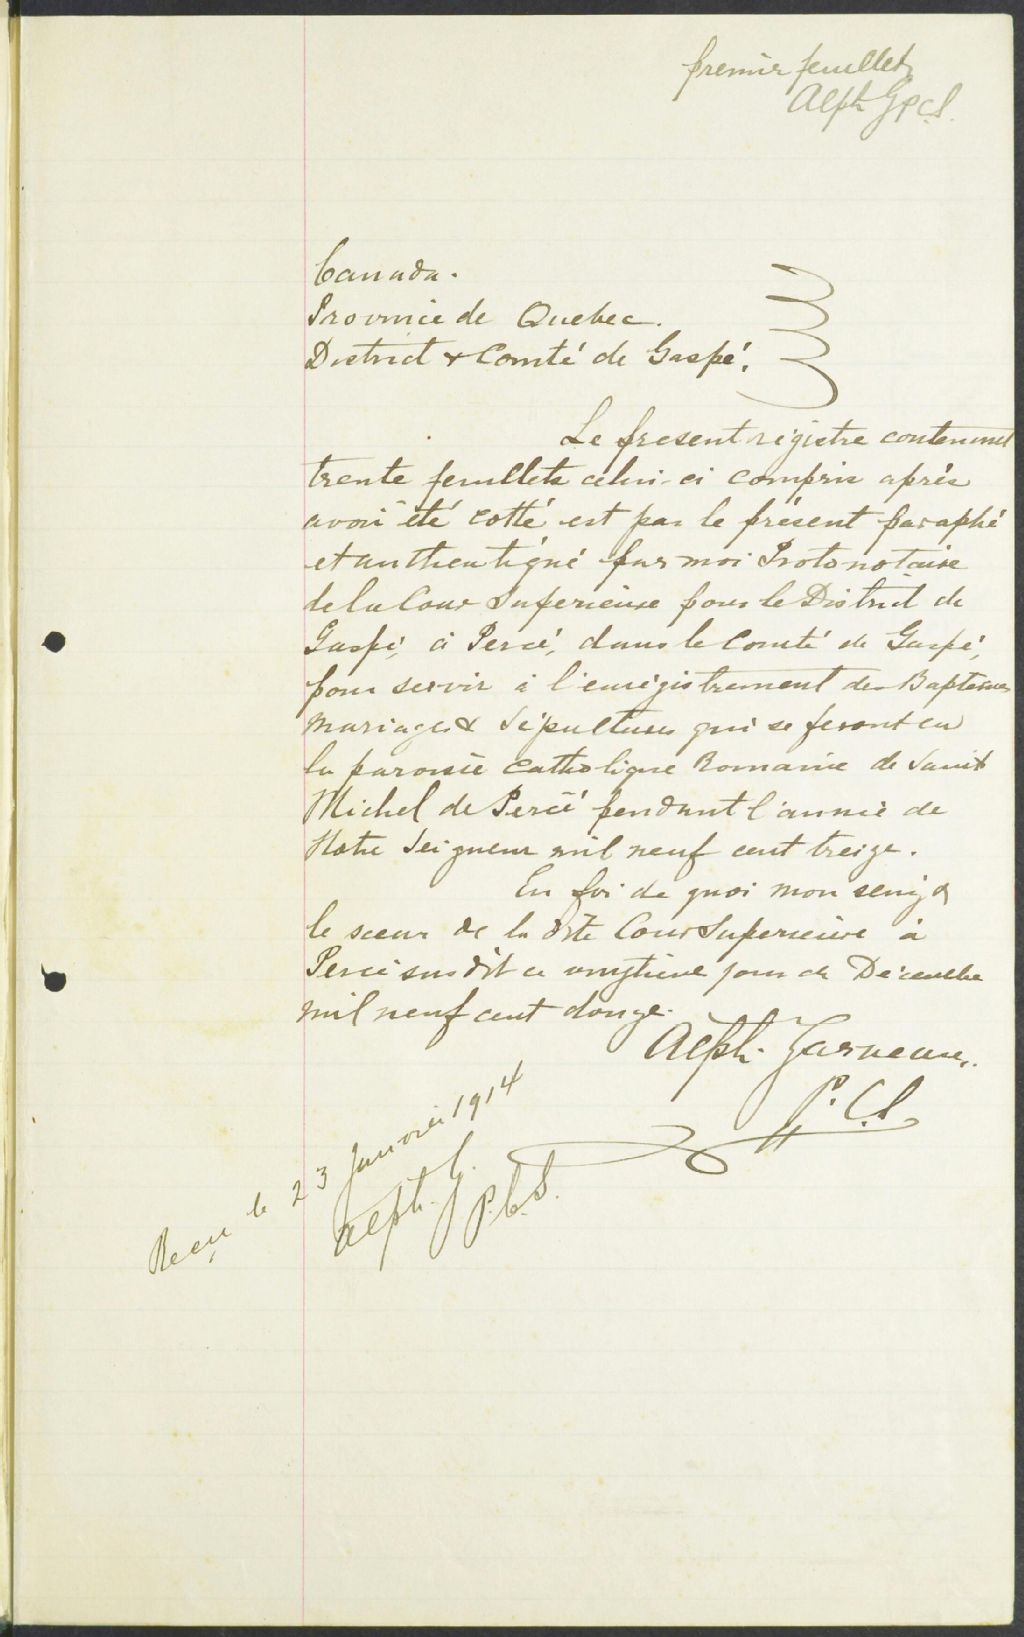 premier feuillet
Alph G P.C.S.
Canada.
Province de Quebec.
District & Comté de Gaspé.
Le présent régistre contenant
trente feuillets celui-ci compris après
avoir été cotté est par le présent paraphé
et authentiqué par moi Protonotaire
de la Cour Superieure pour le District de
Gaspé, à Percé, dans le Comté de Gaspé,
pour servir à l'enrégistrement des Baptemes
Mariages & Sépultures qui se feront en
la paroisse Catholique Romaine de Saint
Michel de Percé pendant l'année de
Notre Seigneur mil neuf cent treize.
En foi de quoi mon seing &
le sceau de la dite Cour Superieure à
Percé susdit ce vingtième jour de Décembre
mil neuf cent douze.
Alph. Garneau,
P.C.S.
Reçu le 23 Janvier 1914
Alph. G.
P.C.S.